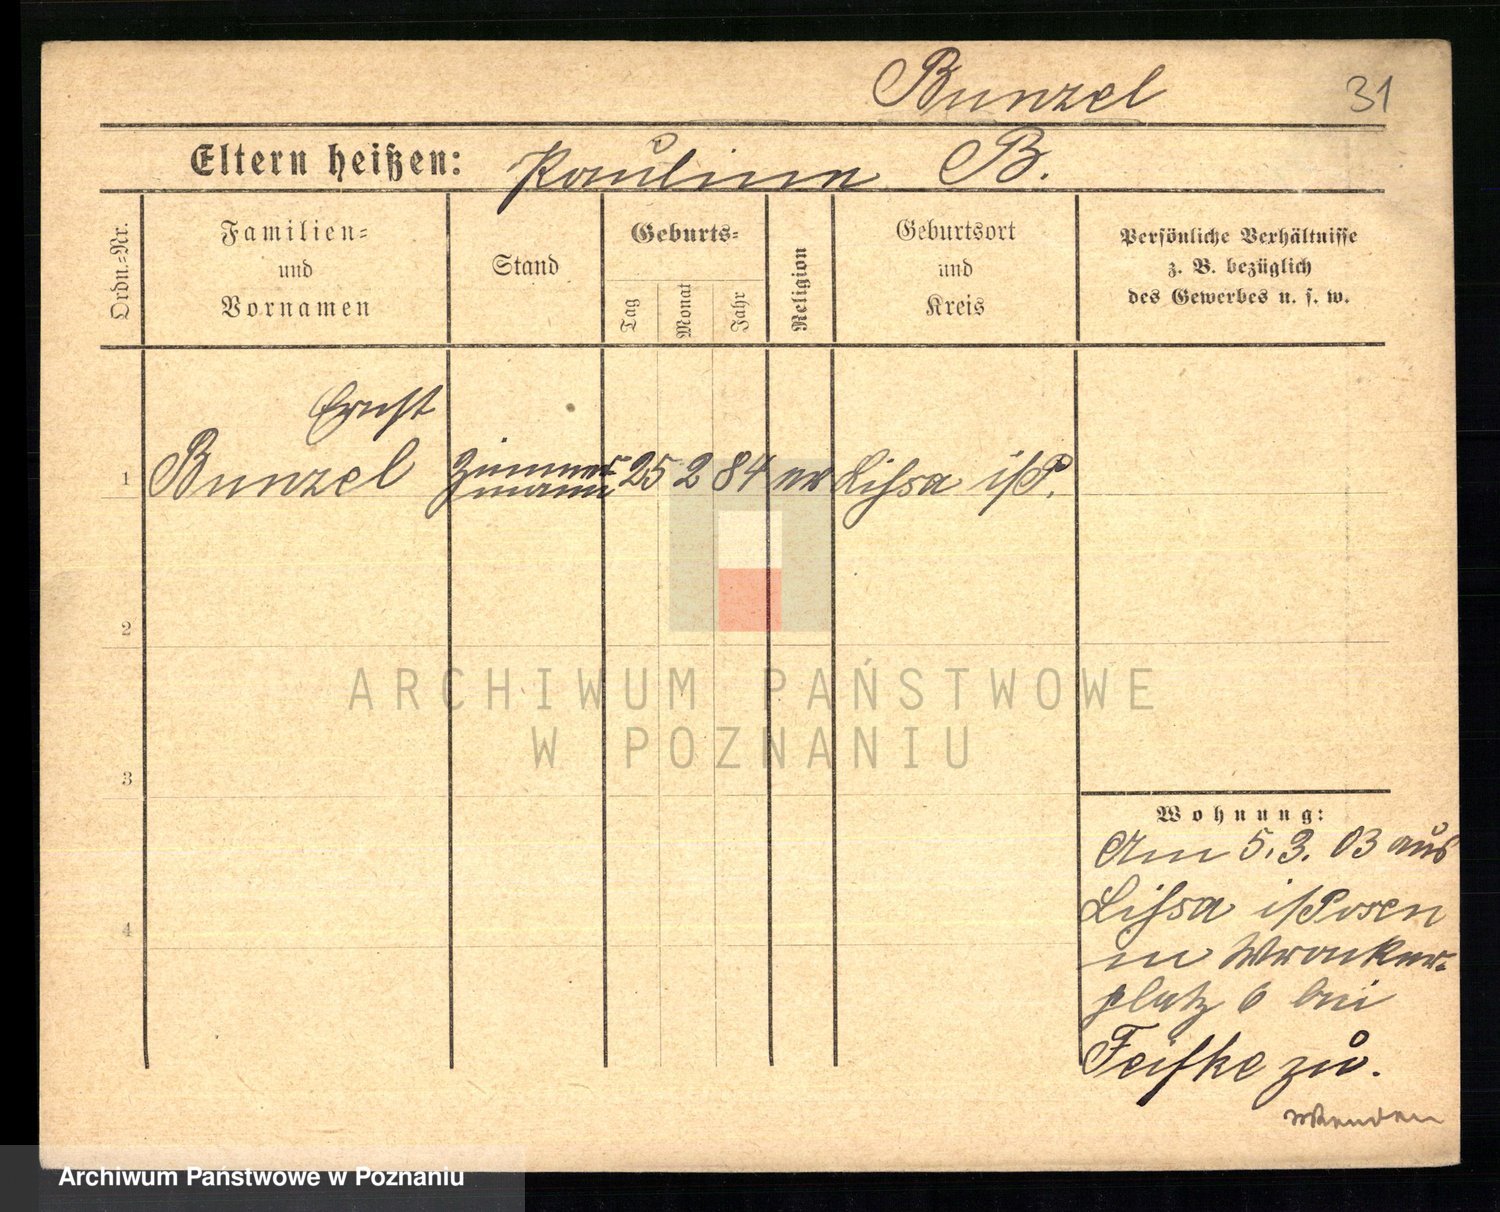 Bunzel
31
Eltern heißen: Pauline B.
Ordn.-Nr.
Familien-
und
Vornamen
Stand
Geburts-
Tag
Monat
Jahr
Religion
Geburtsort
und
Kreis
Persönliche Verhältnisse
z. B. bezüglich
des Gewerbes u. s. w.
Ernst
1 Bunzel Zimmermann 25 2 84 ev Lissa i/P.
2
3
4
Wohnung:
Am 5. 3. 03 aus
Lissa i/Posen
in Wronker-
platz 6 bei
zu.
Wenden
ARCHIWUM PAŃSTWOWE
W POZNANIU
Archiwum Państwowe w Poznaniu